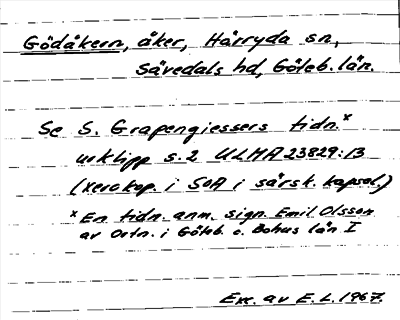 Gödåkern, åker, Härryda sn,
Sävedals hd, Göteb. län.
Se S. Grapengiessers tidn.x
urklipp s. 2 ULMA 23829:13
(xerokop. i SOA i särsk. kapsel)
x En tidn. anm. sign. Emil Olsson
av Ortn. i Göteb. o. Bohus län I
Exc. av E. L. 1967.